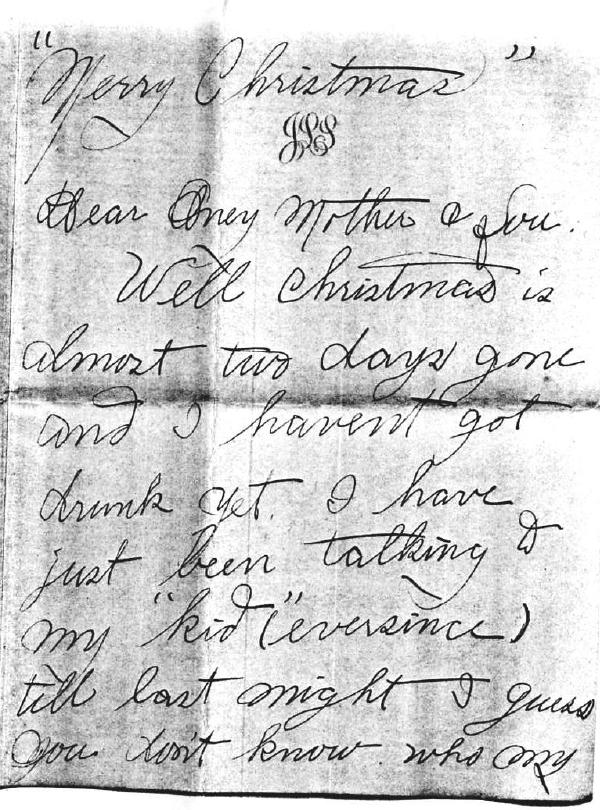 "Merry Christmas"
Dear Oney Mother & Lou.
Well Christmas is
almost two days gone
and I havent got
drunk yet. I have
just been talking to
my "kid ("eversince)
till last night I guess
you don't know who my